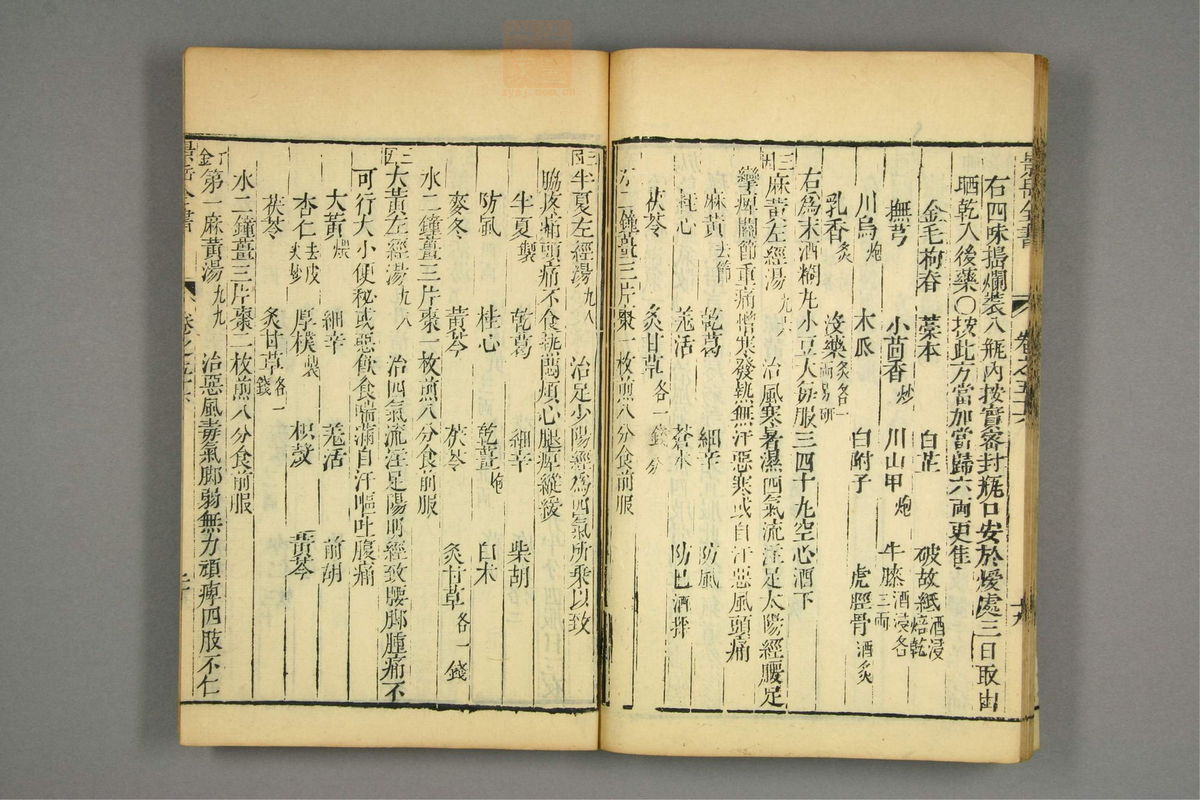 景岳全書 卷之五十六 十九
右四味搗爛裝入瓶內按實密封瓶口安於煖處三日取出
晒乾入後藥〇按此方當加當歸六兩更隹
金毛狗脊 藁本 白芷 破故紙酒浸焙乾
撫芎 小茴香炒 川山甲炮 牛膝酒浸各三兩
川烏炮 木瓜 白附子 虎脛骨酒炙
乳香炙 沒藥炙各一兩另研
右爲末酒糊丸小豆大每服三四十丸空心酒下
三因麻黃左經湯九六 治風寒暑濕四氣流注足太陽經腰足
攣痺關節重痛憎寒發熱無汗惡寒或自汗惡風頭痛
麻黃去節 乾葛 細辛 防風
桂心 羌活 蒼朮 防己酒拌
茯苓 炙甘草各一錢分
水二鐘薑三片棗一枚煎八分食前服
三因半夏左經湯九八 治足少陽經爲四氣所乘以致
脇疼痛頭痛不食熱悶煩心腿痺縱緩
半夏製 乾葛 細辛 柴胡
防風 桂心 乾薑炮 白朮
麥冬 黃芩 茯苓 炙甘草各一錢
水二鐘薑三片棗一枚煎八分食前服
三因大黃左經湯九八 治四氣流注足陽明經致腰脚腫痛不
可行大小便秘或惡飲食喘滿自汗嘔吐腹痛
大黃煨 細辛 羌活 前胡
杏仁去皮尖炒 厚樸製 枳殼 黃芩
茯苓 炙甘草各一錢
水二鐘薑三片棗二枚煎八分食前服
千金第一麻黃湯九九 治惡風毒氣脚弱無力頑痺四肢不仁
景岳全書 卷之五十六